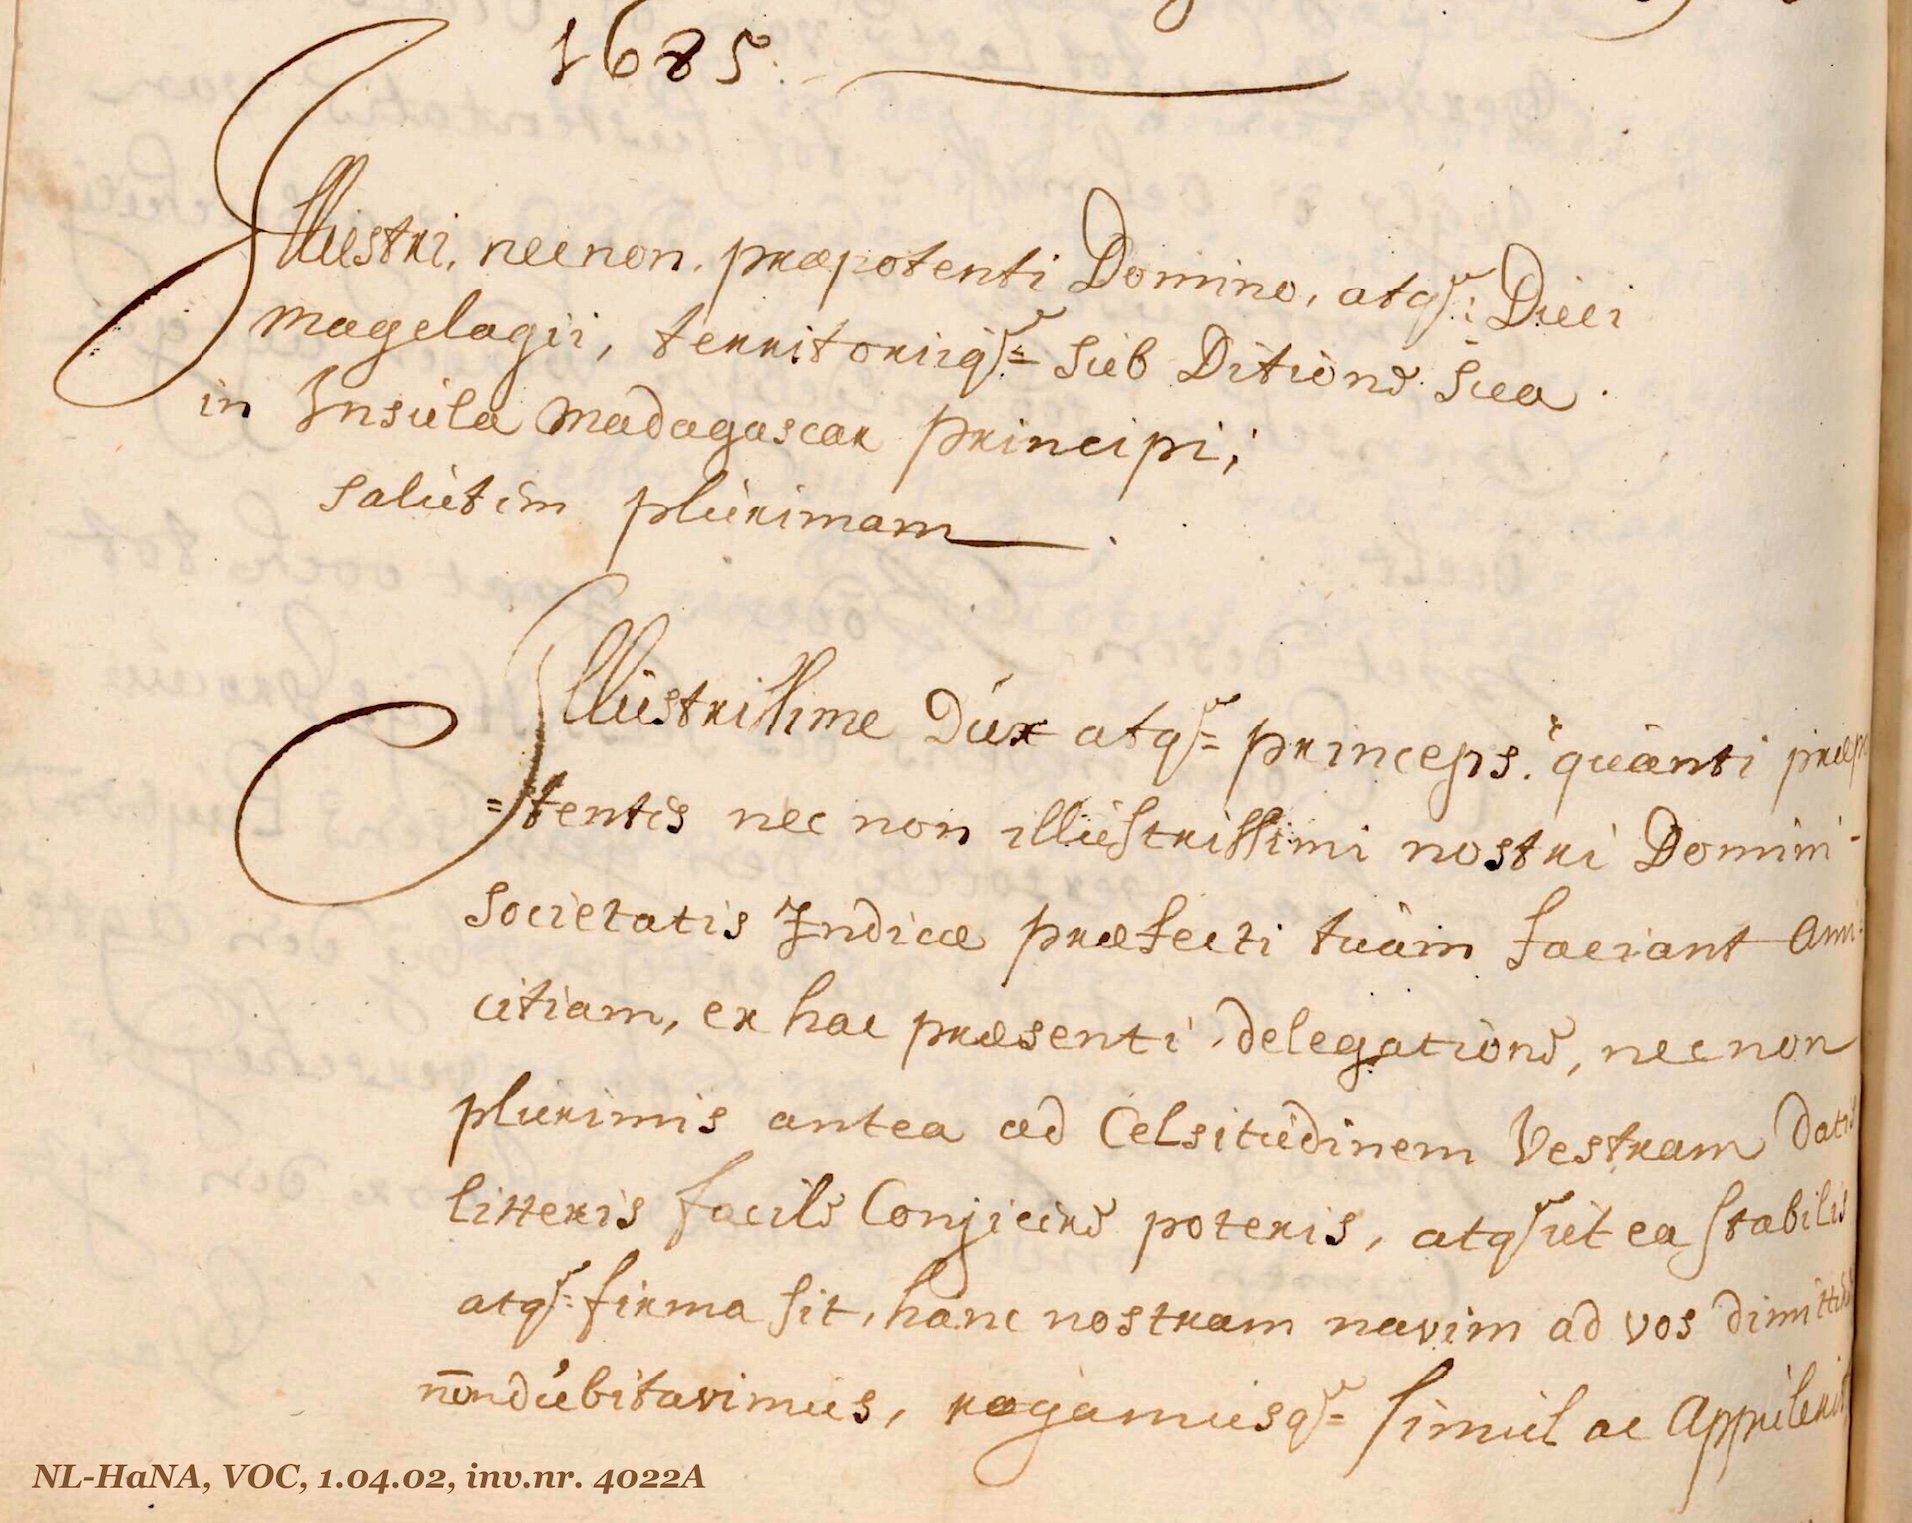 1685.
Illustri, necnon. præpotenti Domino, atq: Duci
Magelagii, territoriiq= sub Ditione sua.
in Insula Madagascar principi;
salutem plurimam.
Illustrissime Dux atq= princeps. quanti præpo
=tentis nec non illustrissimi nostri Domini-
societatis Indicæ præfecti tuam faciant Ami=
citiam, ex hac præsenti delegatione, necnon
plurimis antea ad Celsitudinem Vestram datis
litteris facile Conjicere poteris, atq ut ea stabilis
atq= firma sit, hanc nostram navim ad vos
non dubitavimus, rogamusq= simul ac Appulerit
NL-HaNA, VOC, 1.04.02, inv.nr. 4022A